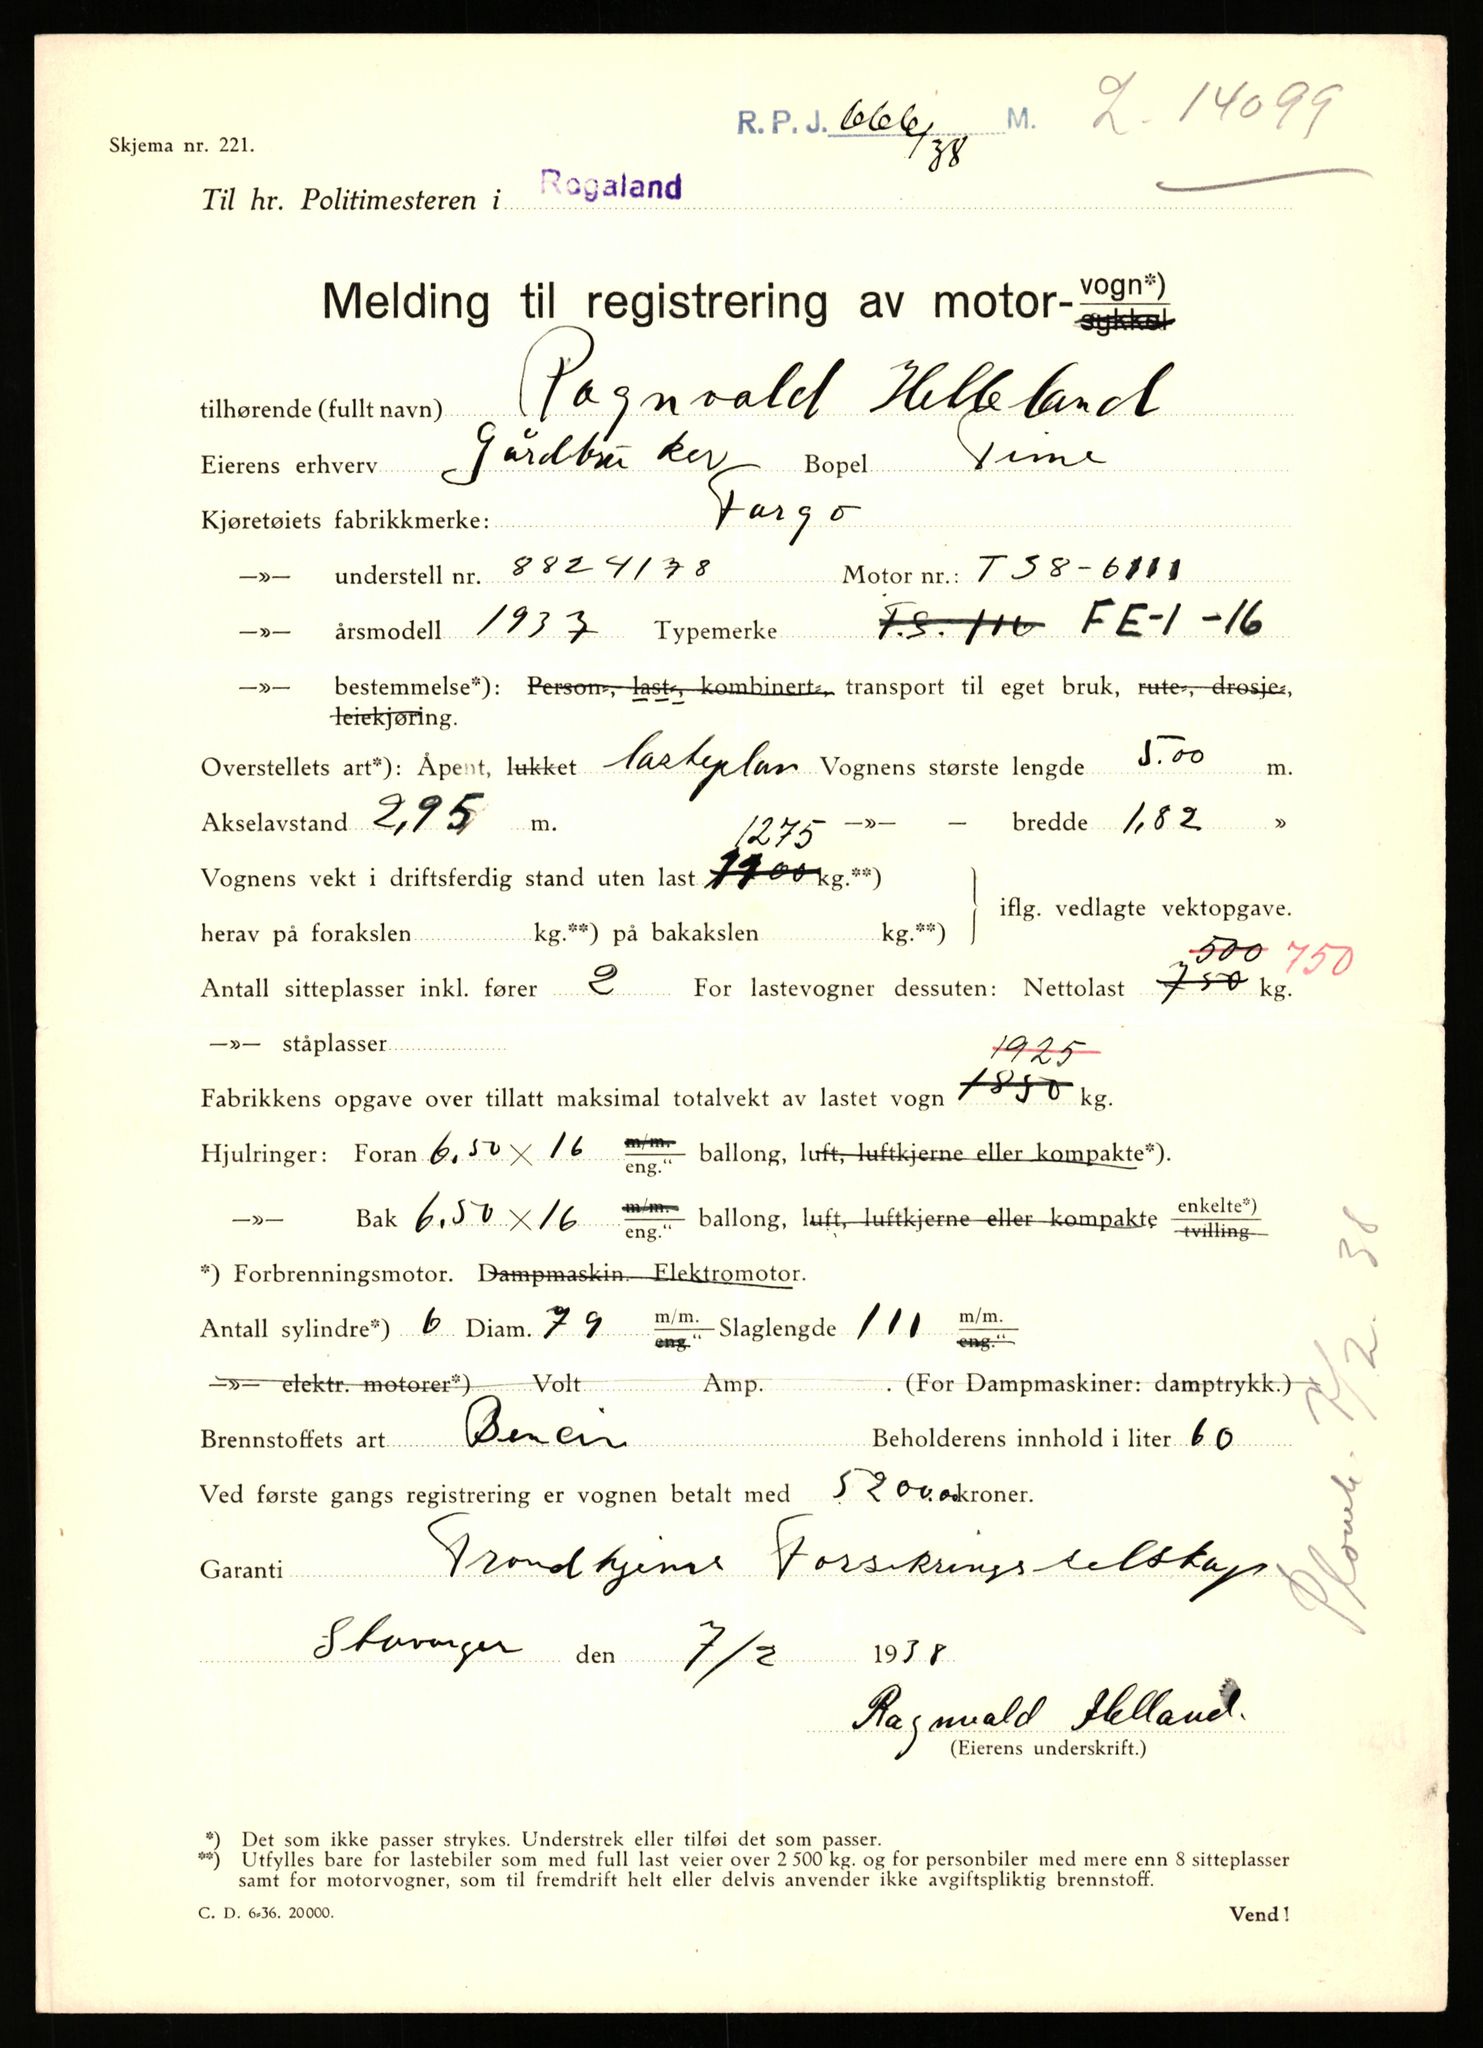 R. P. J. 666/38 M. L. 14099
Skjema nr. 221.
Til hr. Politimesteren i Rogaland
Melding til registrering av motor- vogn*) sykkel
tilhørende (fullt navn) Ragnvald Helleland
Eierens erhverv Gårdbruker Bopel Time
Kjøretøiets fabrikkmerke: Fargo
—»— understell nr. 8824178 Motor nr.: T 38-6111
—»— årsmodell 1937 Typemerke T.S. 116 FE-1-16
—»— bestemmelse*): Person-, last-, kombinert-, transport til eget bruk, rute-, drosje-,
leiekjøring.
Overstellets art*): Åpent, lukket lasteplan Vognens største lengde 5.00 m.
Akselavstand 2,95 m. —»— — bredde 1,82 »
1275
Vognens vekt i driftsferdig stand uten last 1100 kg.**)
iflg. vedlagte vektopgave.
herav på forakslen kg.**) på bakakslen kg.**)
500 750
Antall sitteplasser inkl. fører 2 For lastevogner dessuten: Nettolast 750 kg.
—»— ståplasser
1925
Fabrikkens opgave over tillatt maksimal totalvekt av lastet vogn 1850 kg.
Hjulringer: Foran 6,50 × 16 m/m. eng." ballong, luft, luftkjerne eller kompakte*).
—»— Bak 6.50 × 16 m/m. eng." ballong, luft, luftkjerne eller kompakte enkelte*) tvilling
*) Forbrenningsmotor. Dampmaskin. Elektromotor.
Antall sylindre*) 6 Diam. 79 m/m. eng." Slaglengde 111 m/m. eng."
—»— elektr. motorer*) Volt Amp. . (For Dampmaskiner: damptrykk.)
Brennstoffets art Bencin Beholderens innhold i liter 60
Ved første gangs registrering er vognen betalt med 5200.00 kroner.
Garanti Trondhjems Forsikringsselskap
Stavanger den 7/2 1938
Ragnvald Helland.
(Eierens underskrift.)
7/2. 38
*) Det som ikke passer strykes. Understrek eller tilføi det som passer.
**) Utfylles bare for lastebiler som med full last veier over 2 500 kg. og for personbiler med mere enn 8 sitteplasser
samt for motorvogner, som til fremdrift helt eller delvis anvender ikke avgiftspliktig brennstoff.
C. D. 6-36. 20000.
Vend!